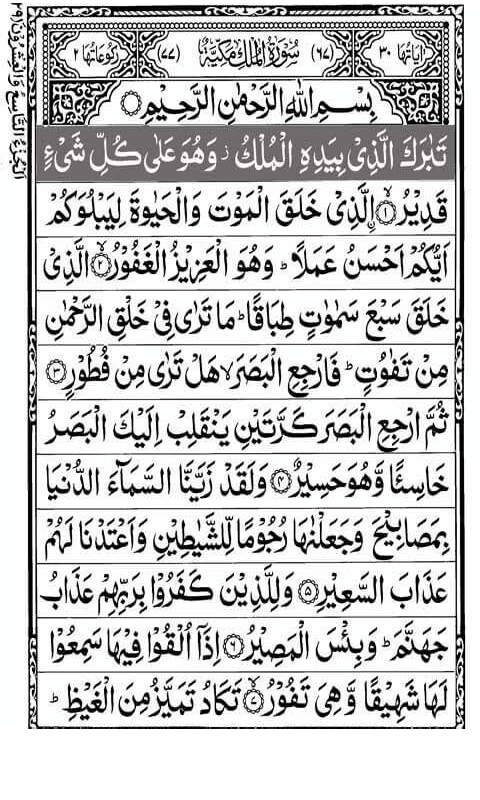 اٰیاتها ۳۰ (۶۷) سُوْرَةُ الْمُلْكِ مَكِّيَّةٌ (۷۷) ركوعاتها ۲
بِسْمِ اللّٰهِ الرَّحْمٰنِ الرَّحِيْمِ
تَبٰرَكَ الَّذِیْ بِيَدِهِ الْمُلْكُ ز وَهُوَ عَلٰى كُلِّ شَیْءٍ
قَدِيْرُ ۝۱ ۨالَّذِیْ خَلَقَ الْمَوْتَ وَالْحَيٰوةَ لِيَبْلُوَكُمْ
اَيُّكُمْ اَحْسَنُ عَمَلًا ؕ وَهُوَ الْعَزِيْزُ الْغَفُوْرُ ۝۲ الَّذِیْ
خَلَقَ سَبْعَ سَمٰوٰتٍ طِبَاقًا ؕ مَا تَرٰى فِیْ خَلْقِ الرَّحْمٰنِ
مِنْ تَفٰوُتٍ ؕ فَارْجِعِ الْبَصَرَ ۙ هَلْ تَرٰى مِنْ فُطُوْرٍ ۝۳
ثُمَّ ارْجِعِ الْبَصَرَ كَرَّتَيْنِ يَنْقَلِبْ اِلَيْكَ الْبَصَرُ
خَاسِئًا وَّهُوَ حَسِيْرٌ ۝۴ وَلَقَدْ زَيَّنَّا السَّمَآءَ الدُّنْيَا
بِمَصَابِيْحَ وَجَعَلْنٰهَا رُجُوْمًا لِّلشَّيٰطِيْنِ وَاَعْتَدْنَا لَهُمْ
عَذَابَ السَّعِيْرِ ۝۵ وَلِلَّذِيْنَ كَفَرُوْا بِرَبِّهِمْ عَذَابُ
جَهَنَّمَ ؕ وَبِئْسَ الْمَصِيْرُ ۝۶ اِذَاۤ اُلْقُوْا فِيْهَا سَمِعُوْا
لَهَا شَهِيْقًا وَّهِیَ تَفُوْرُ ۝۷ تَكَادُ تَمَيَّزُ مِنَ الْغَيْظِ ؕ
اَلْجُزْءُ التَّاسِعُ وَالْعِشْرُوْنَ (۲۹)